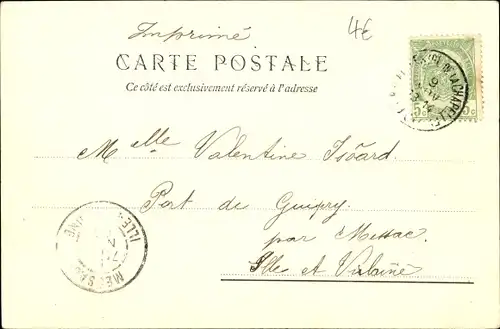 Imprimé
4€
CARTE POSTALE
Ce côté est exclusivement réservé à l'adresse
DE LA CHAPELLE
5c 5c
Melle Valentine Isoard
Port de Guipry
par Messac
Ille et Vilaine
MESSAC
ILLE